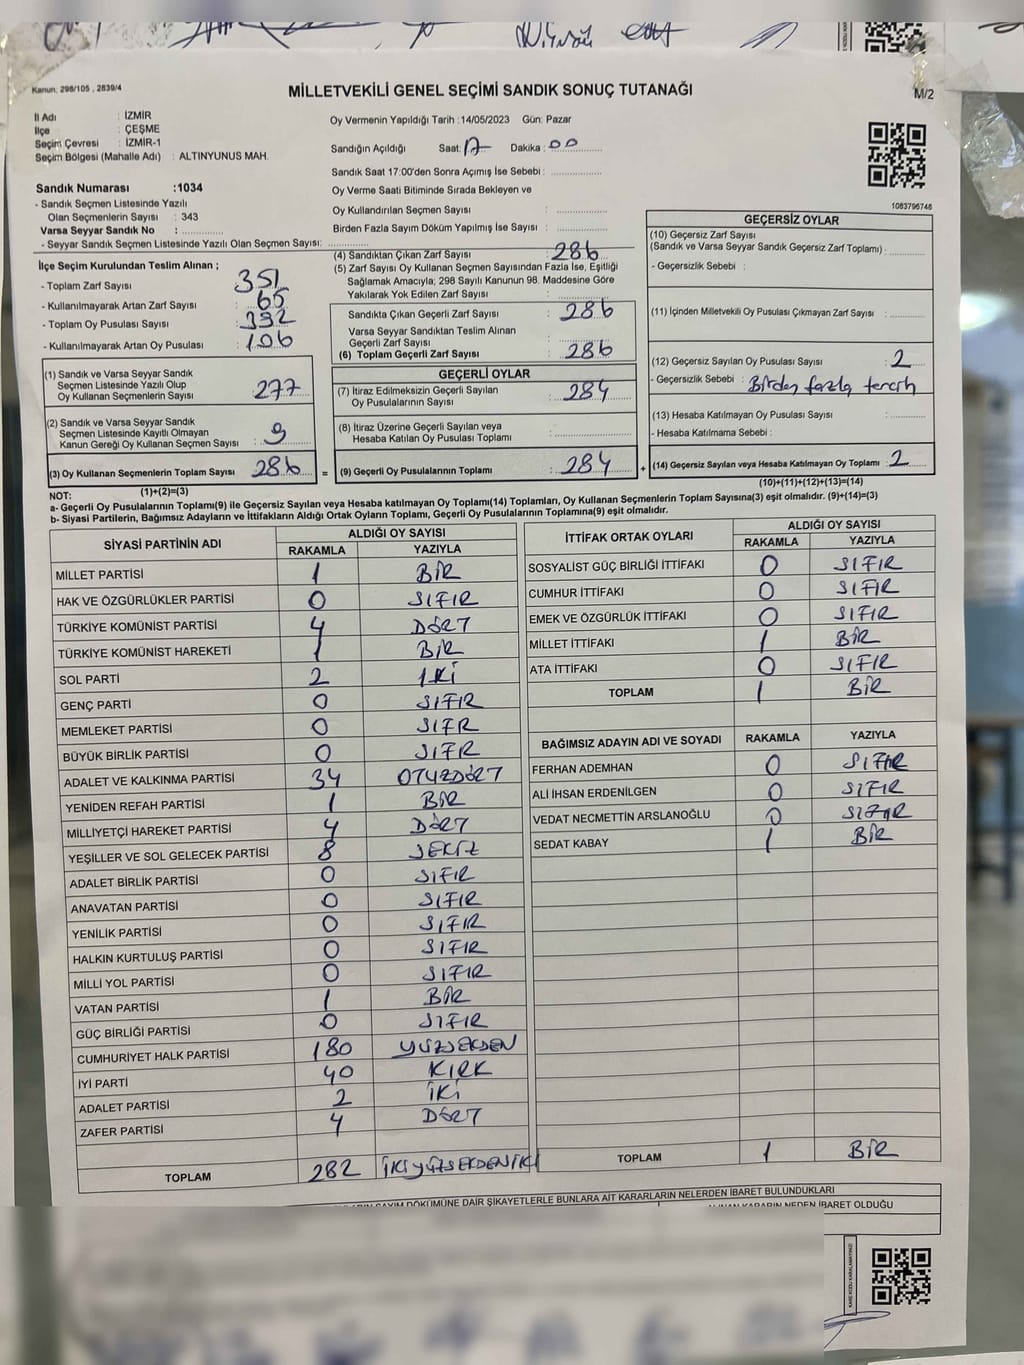 Kanun: 298/105 , 2839/4
MİLLETVEKİLİ GENEL SEÇİMİ SANDIK SONUÇ TUTANAĞI
M/2
İl Adı : İZMİR
İlçe : ÇEŞME
Seçim Çevresi : İZMİR-1
Seçim Bölgesi (Mahalle Adı) : ALTINYUNUS MAH.
Oy Vermenin Yapıldığı Tarih : 14/05/2023 Gün: Pazar
Sandığın Açıldığı Saat: 17 Dakika : 00
Sandık Saat 17:00'den Sonra Açımış İse Sebebi :
Oy Verme Saati Bitiminde Sırada Bekleyen ve
Oy Kullandırılan Seçmen Sayısı :
Birden Fazla Sayım Döküm Yapılmış İse Sayısı :
1083796748
Sandık Numarası :1034
- Sandık Seçmen Listesinde Yazılı
Olan Seçmenlerin Sayısı : 343
Varsa Seyyar Sandık No :
- Seyyar Sandık Seçmen Listesinde Yazılı Olan Seçmen Sayısı:
İlçe Seçim Kurulundan Teslim Alınan ;
- Toplam Zarf Sayısı : 351
- Kullanılmayarak Artan Zarf Sayısı : 65
- Toplam Oy Pusulası Sayısı : 392
- Kullanılmayarak Artan Oy Pusulası : 106
(1) Sandık ve Varsa Seyyar Sandık
Seçmen Listesinde Yazılı Olup
Oy Kullanan Seçmenlerin Sayısı : 277
(2) Sandık ve Varsa Seyyar Sandık
Seçmen Listesinde Kayıtlı Olmayan
Kanun Gereği Oy Kullanan Seçmen Sayısı : 9
(3) Oy Kullanan Seçmenlerin Toplam Sayısı : 286
(1)+(2)=(3)
(4) Sandıktan Çıkan Zarf Sayısı : 286
(5) Zarf Sayısı Oy Kullanan Seçmen Sayısından Fazla İse, Eşitliği
Sağlamak Amacıyla; 298 Sayılı Kanunun 98. Maddesine Göre
Yakılarak Yok Edilen Zarf Sayısı :
Sandıkta Çıkan Geçerli Zarf Sayısı : 286
Varsa Seyyar Sandıktan Teslim Alınan
Geçerli Zarf Sayısı :
(6) Toplam Geçerli Zarf Sayısı : 286
GEÇERLİ OYLAR
(7) İtiraz Edilmeksizin Geçerli Sayılan
Oy Pusulalarının Sayısı : 284
(8) İtiraz Üzerine Geçerli Sayılan veya
Hesaba Katılan Oy Pusulası Toplamı :
= (9) Geçerli Oy Pusulalarının Toplamı : 284
GEÇERSİZ OYLAR
(10) Geçersiz Zarf Sayısı
(Sandık ve Varsa Seyyar Sandık Geçersiz Zarf Toplamı) :
- Geçersizlik Sebebi :
(11) İçinden Milletvekili Oy Pusulası Çıkmayan Zarf Sayısı :
(12) Geçersiz Sayılan Oy Pusulası Sayısı : 2
- Geçersizlik Sebebi : Birden fazla tercih
(13) Hesaba Katılmayan Oy Pusulası Sayısı :
- Hesaba Katılmama Sebebi :
+ (14) Geçersiz Sayılan veya Hesaba Katılmayan Oy Toplamı : 2
(10)+(11)+(12)+(13)=(14)
NOT:
a- Geçerli Oy Pusulalarının Toplamı(9) ile Geçersiz Sayılan veya Hesaba katılmayan Oy Toplamı(14) Toplamları, Oy Kullanan Seçmenlerin Toplam Sayısına(3) eşit olmalıdır. (9)+(14)=(3)
b- Siyasi Partilerin, Bağımsız Adayların ve İttifakların Aldığı Ortak Oyların Toplamı, Geçerli Oy Pusulalarının Toplamına(9) eşit olmalıdır.
SİYASİ PARTİNİN ADI ALDIĞI OY SAYISI
RAKAMLA YAZIYLA
MİLLET PARTİSİ 1 BİR
HAK VE ÖZGÜRLÜKLER PARTİSİ 0 SIFIR
TÜRKİYE KOMÜNİST PARTİSİ 4 DÖRT
TÜRKİYE KOMÜNİST HAREKETİ 1 BİR
SOL PARTİ 2 İKİ
GENÇ PARTİ 0 SIFIR
MEMLEKET PARTİSİ 0 SIFR
BÜYÜK BİRLİK PARTİSİ 0 SIFR
ADALET VE KALKINMA PARTİSİ 34 OTUZDÖRT
YENİDEN REFAH PARTİSİ 1 BİR
MİLLİYETÇİ HAREKET PARTİSİ 4 DÖRT
YEŞİLLER VE SOL GELECEK PARTİSİ 8 SEKİZ
ADALET BİRLİK PARTİSİ 0 SIFIR
ANAVATAN PARTİSİ 0 SIFIR
YENİLİK PARTİSİ 0 SIFIR
HALKIN KURTULUŞ PARTİSİ 0 SIFIR
MİLLİ YOL PARTİSİ 0 SIFIR
VATAN PARTİSİ 1 BİR
GÜÇ BİRLİĞİ PARTİSİ 0 SIFIR
CUMHURİYET HALK PARTİSİ 180 YÜZSEKSEN
İYİ PARTİ 40 KIRK
ADALET PARTİSİ 2 İKİ
ZAFER PARTİSİ 4 DÖRT
TOPLAM 282 İKİYÜZSEKSENİKİ
İTTİFAK ORTAK OYLARI ALDIĞI OY SAYISI
RAKAMLA YAZIYLA
SOSYALİST GÜÇ BİRLİĞİ İTTİFAKI 0 SIFIR
CUMHUR İTTİFAKI 0 SIFIR
EMEK VE ÖZGÜRLÜK İTTİFAKI 0 SIFIR
MİLLET İTTİFAKI 1 BİR
ATA İTTİFAKI 0 SIFIR
TOPLAM 1 BİR
BAĞIMSIZ ADAYIN ADI VE SOYADI RAKAMLA YAZIYLA
FERHAN ADEMHAN 0 SIFIR
ALİ İHSAN ERDENİLGEN 0 SIFIR
VEDAT NECMETTİN ARSLANOĞLU 0 SIFIR
SEDAT KABAY 1 BİR
TOPLAM 1 BİR
SAYIM DÖKÜMÜNE DAİR ŞİKAYETLERLE BUNLARA AİT KARARLARIN NELERDEN İBARET BULUNDUKLARI
ALINAN KARARIN NEDEN İBARET OLDUĞU
KARE KODU KARALAMAYINIZ!